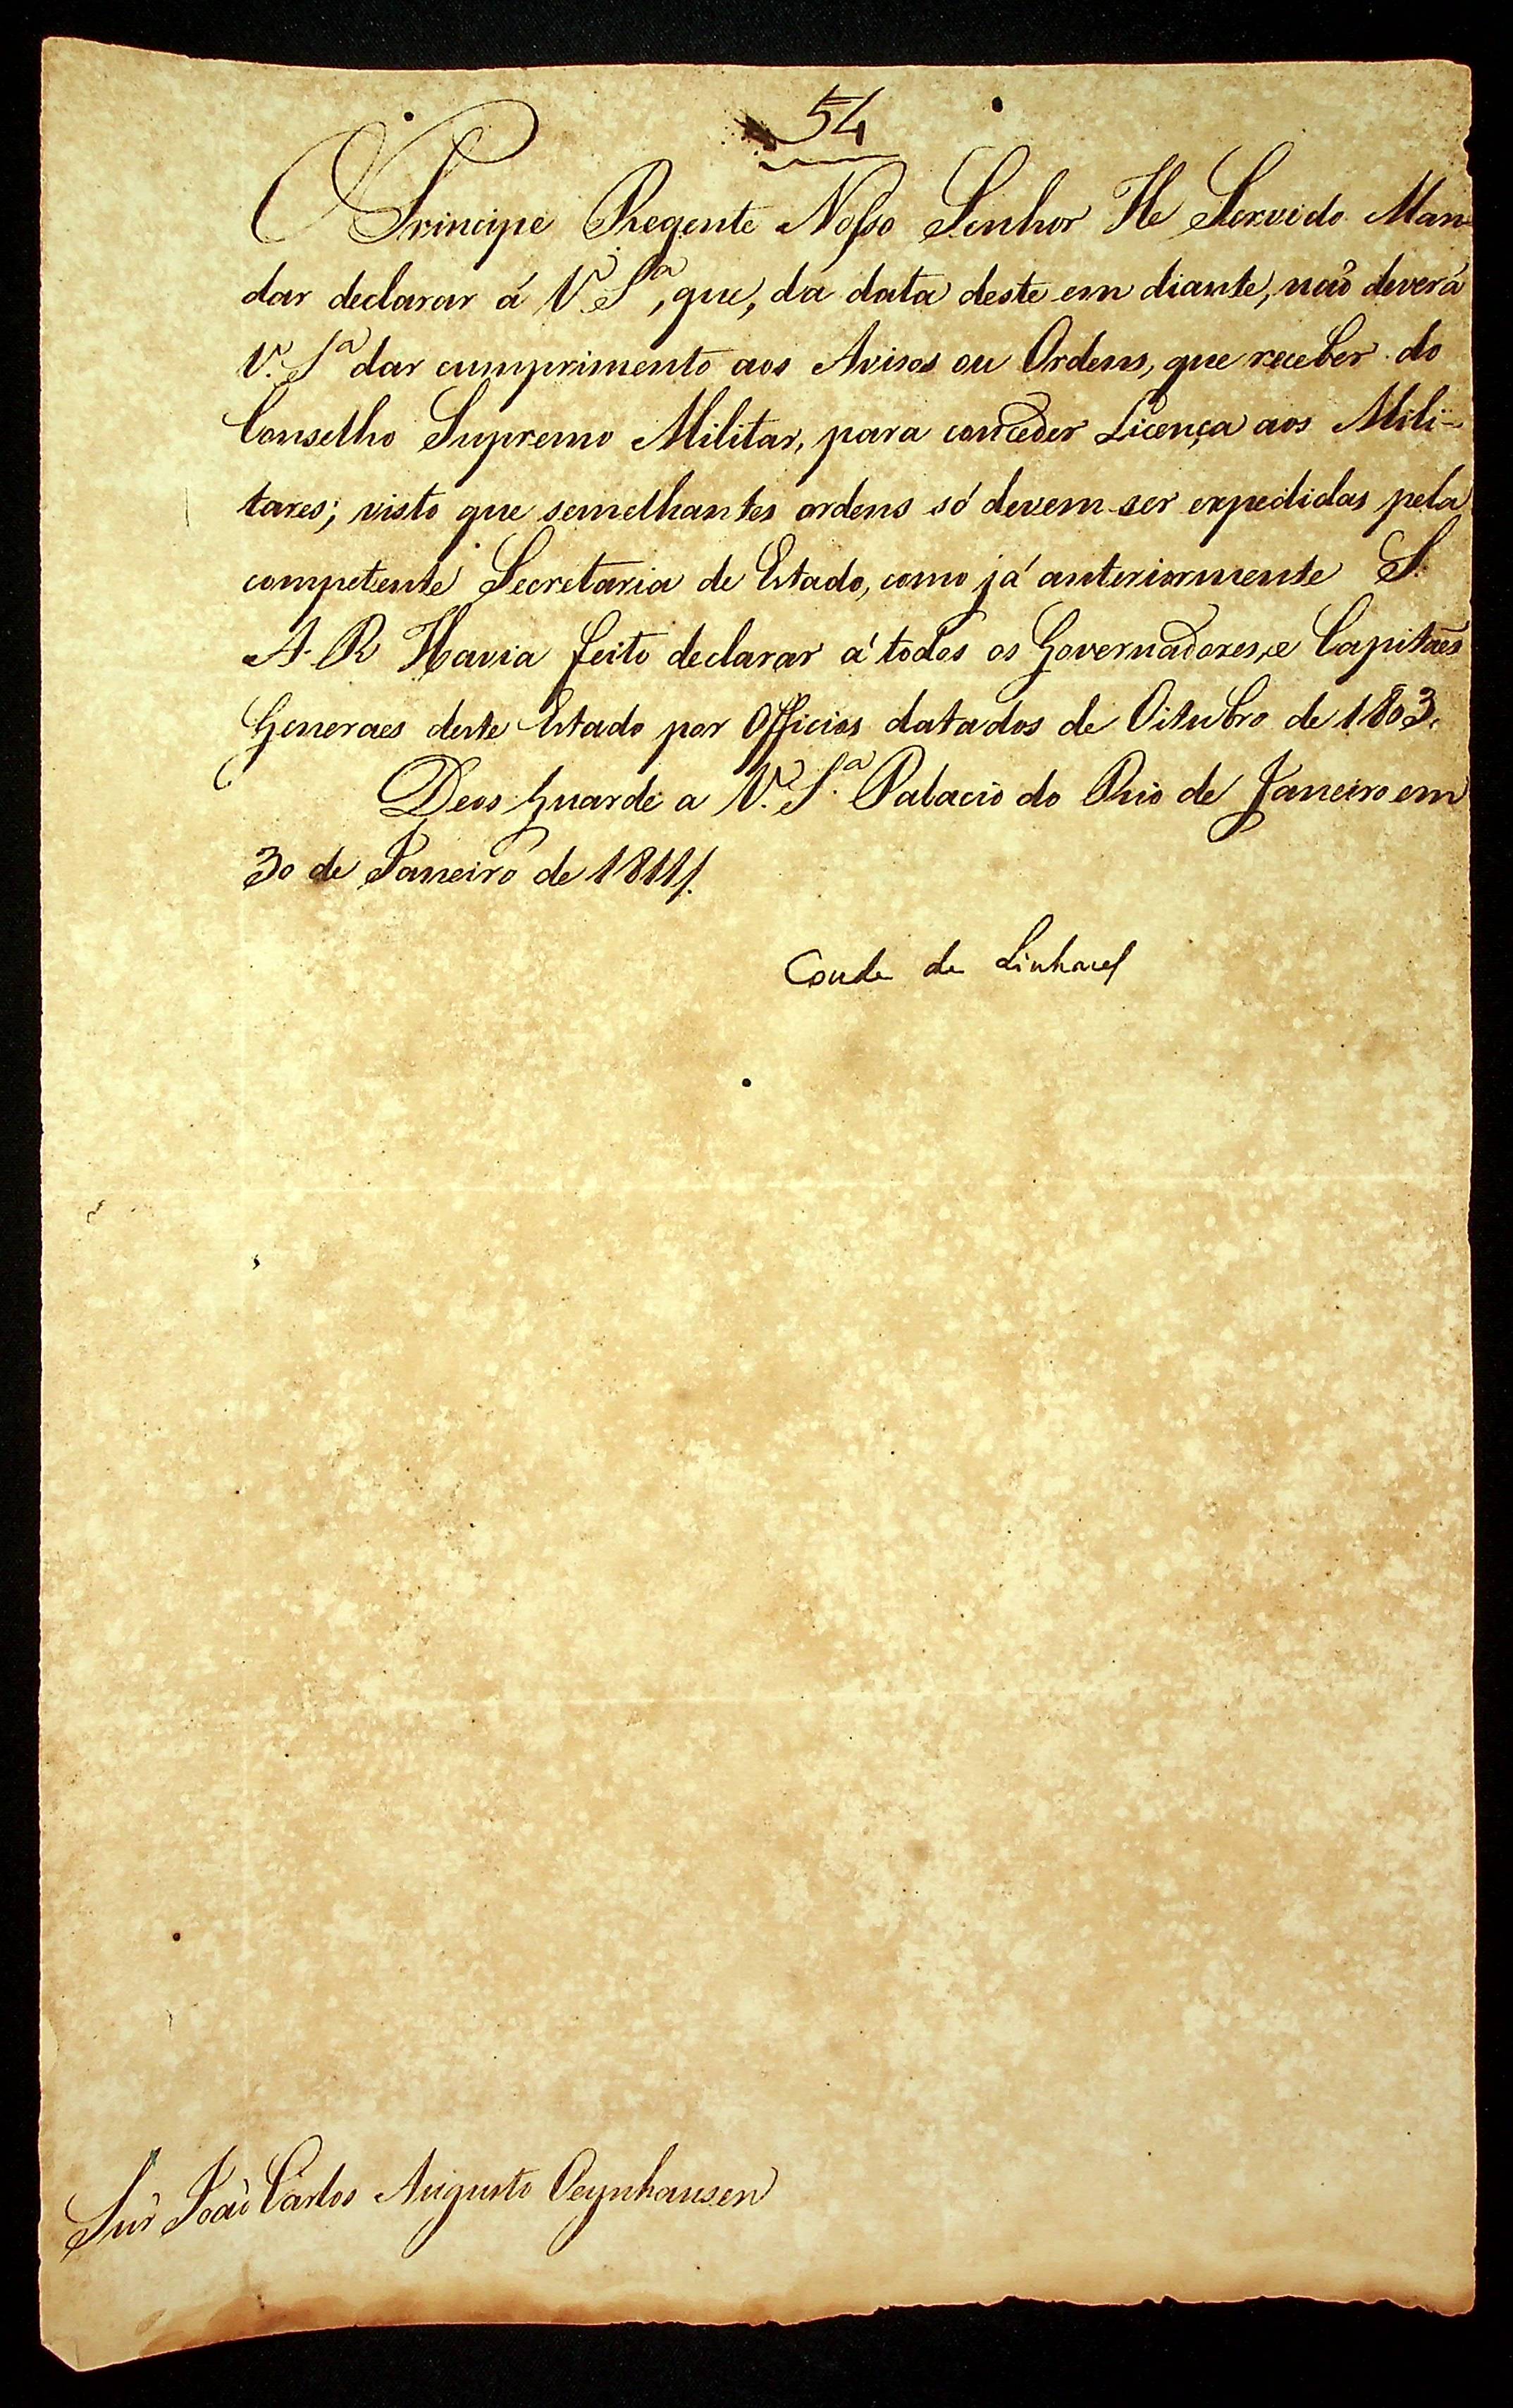 54
O Principe Regente Nosso Senhor He Servido Man-
dar declarar á V. S.ª, que, da data deste em diante, não deverá
V. S.ª dar cumprimento aos Avisos ou Ordens, que receber do
Conselho Supremo Militar, para conceder Licença aos Mili-
tares; visto que semelhantes ordens só devem ser expedidas pela
competente Secretaria de Estado, como já anteriormente S.
A. R Havia feito declarar á todos os Governadores, e Capitães
Generaes deste Estado por Officios datados de Oitubro de 1803.
Deos Guarde a V. S.ª Palacio do Rio de Janeiro em
30 de Janeiro de 1811.
Conde de Linhares
Snr̃ João Carlos Augusto Oeynhausen